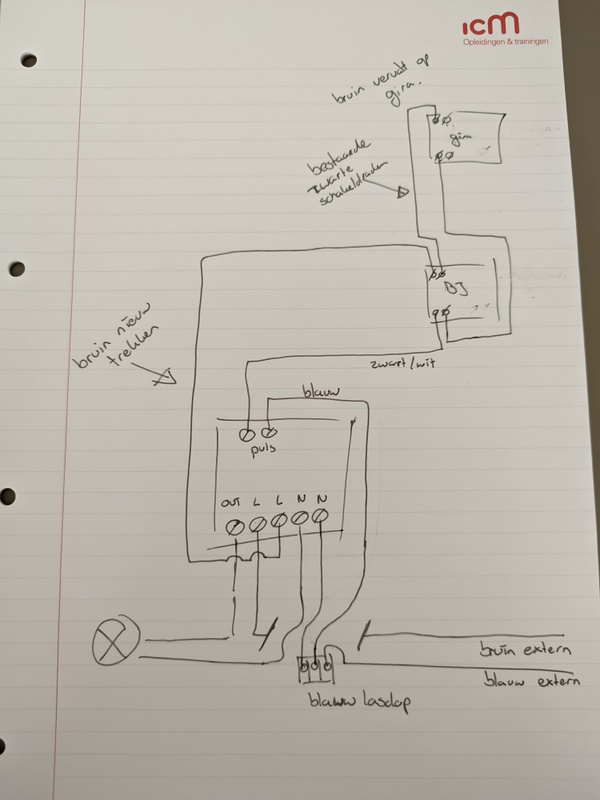 icm
Opleidingen & trainingen
bruin vervalt op
gira.
gira
bestaande
zwarte
schakeldraden
BJ
bruin nieuw
trekken
zwart/wit
blauw
puls
OUT L L N N
bruin extern
blauw extern
blauw lasdop